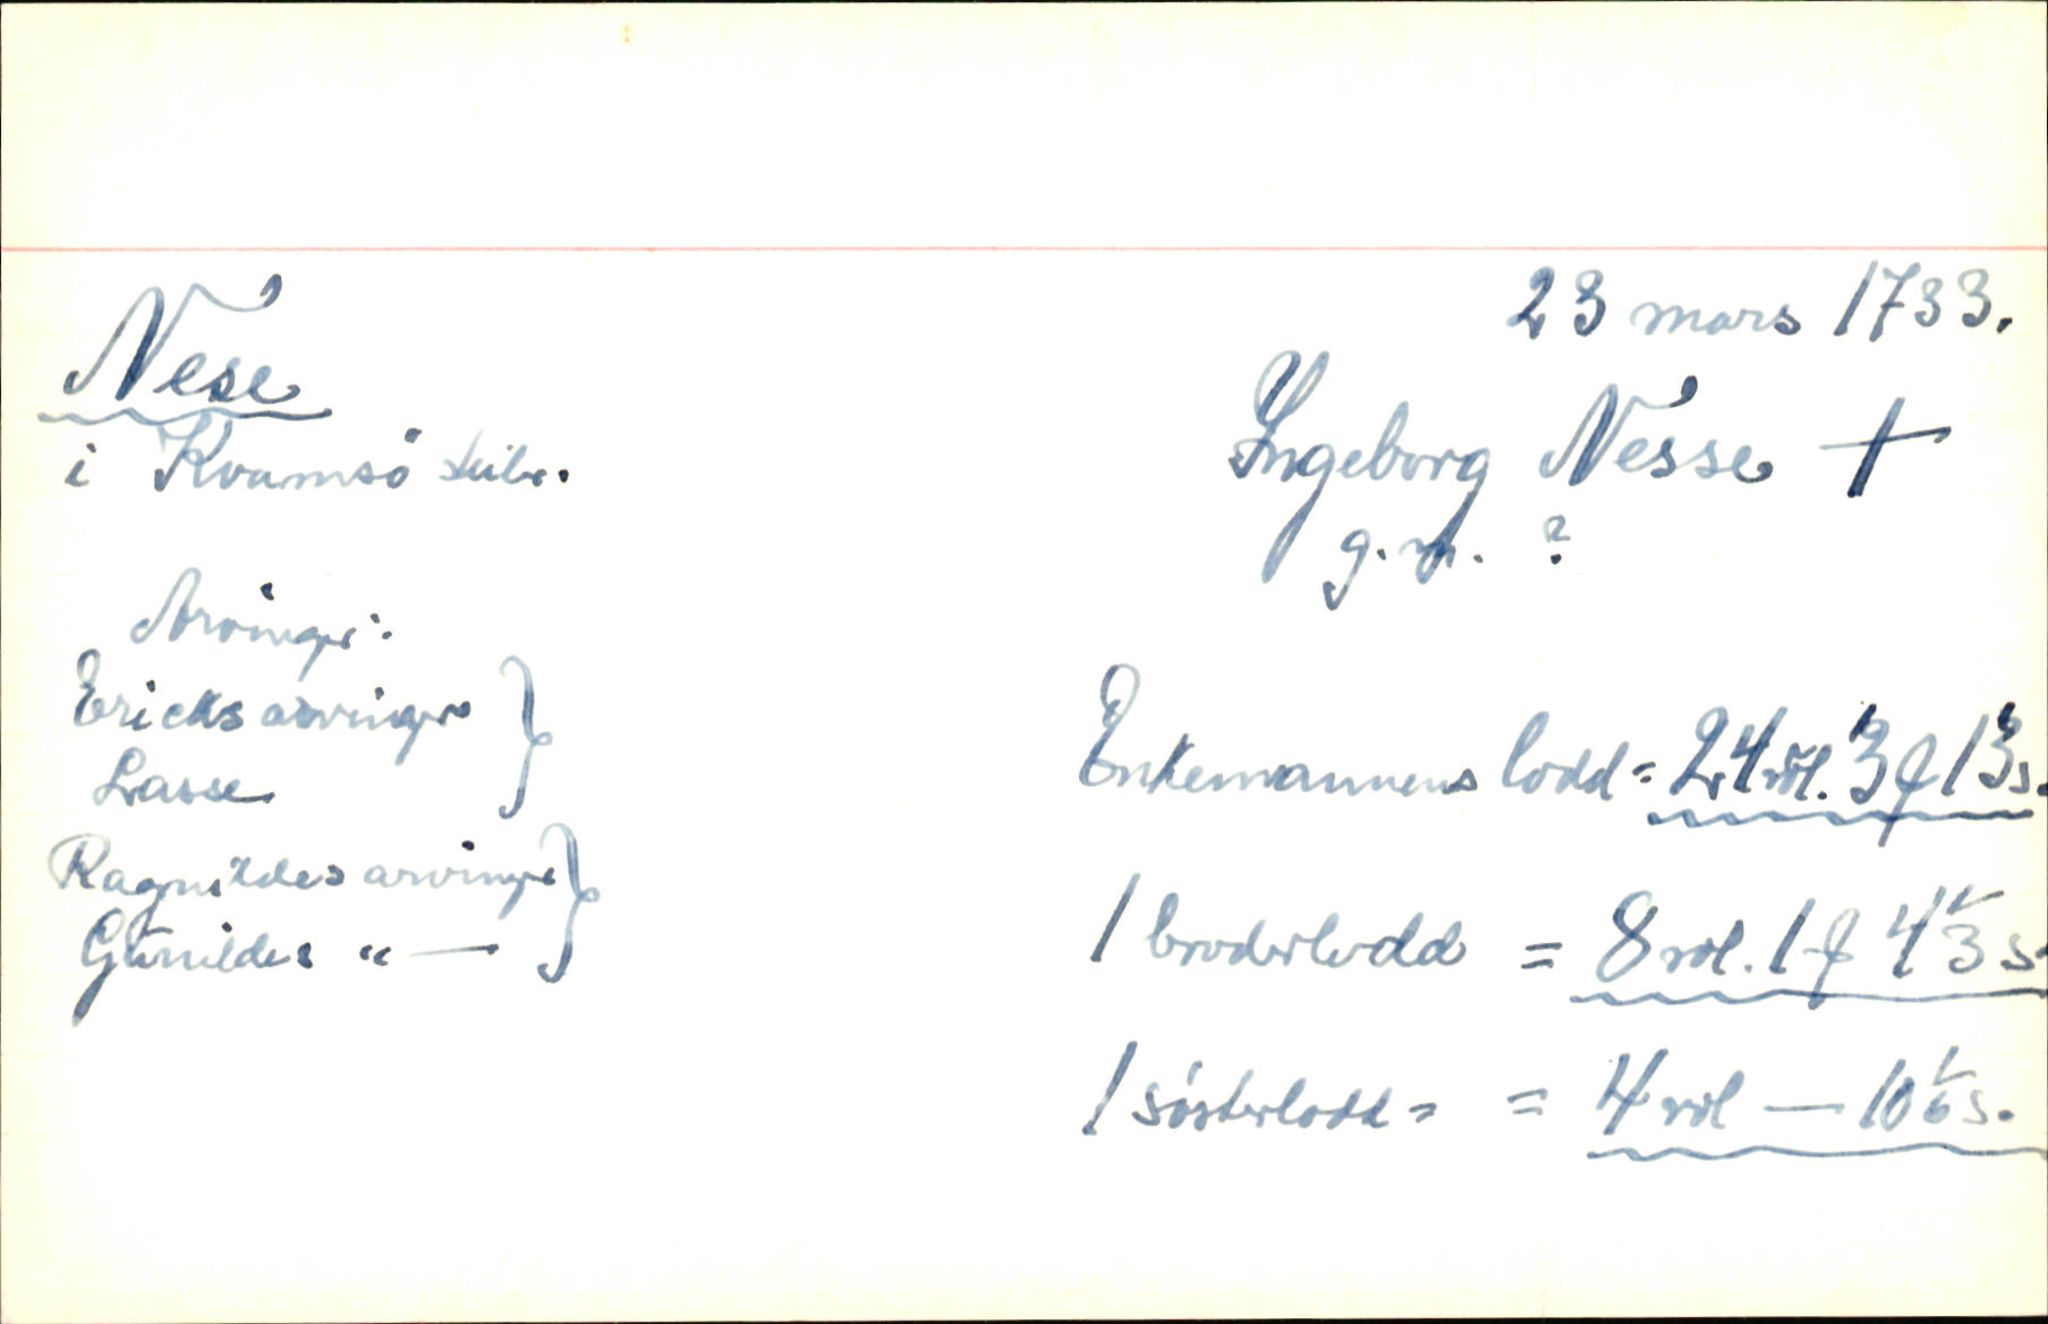 23 mars 1733.
Nese
i Kvamsö skibr.
Ingeborg Nesse †
g. m. ?
Arvinger:
Ericks arvinger
Lasse
Ragnildes arvinger
Gunildes " —
Enkemannens lodd = 24 rdl. 3 f 13 s.
1 broderlodd = 8 rdl. 1 f 4 1/3 s.
1 sösterlodd = = 4 rdl — 10 1/6 s.